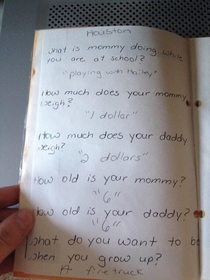 Houston
What is mommy doing while
you are at school?
"playing with Hailey"
How much does your mommy
weigh?
"1 dollar"
How much does your daddy
weigh?
"2 dollars"
How old is your mommy?
"6"
How old is your daddy?
"6"
What do you want to be
when you grow up?
A firetruck